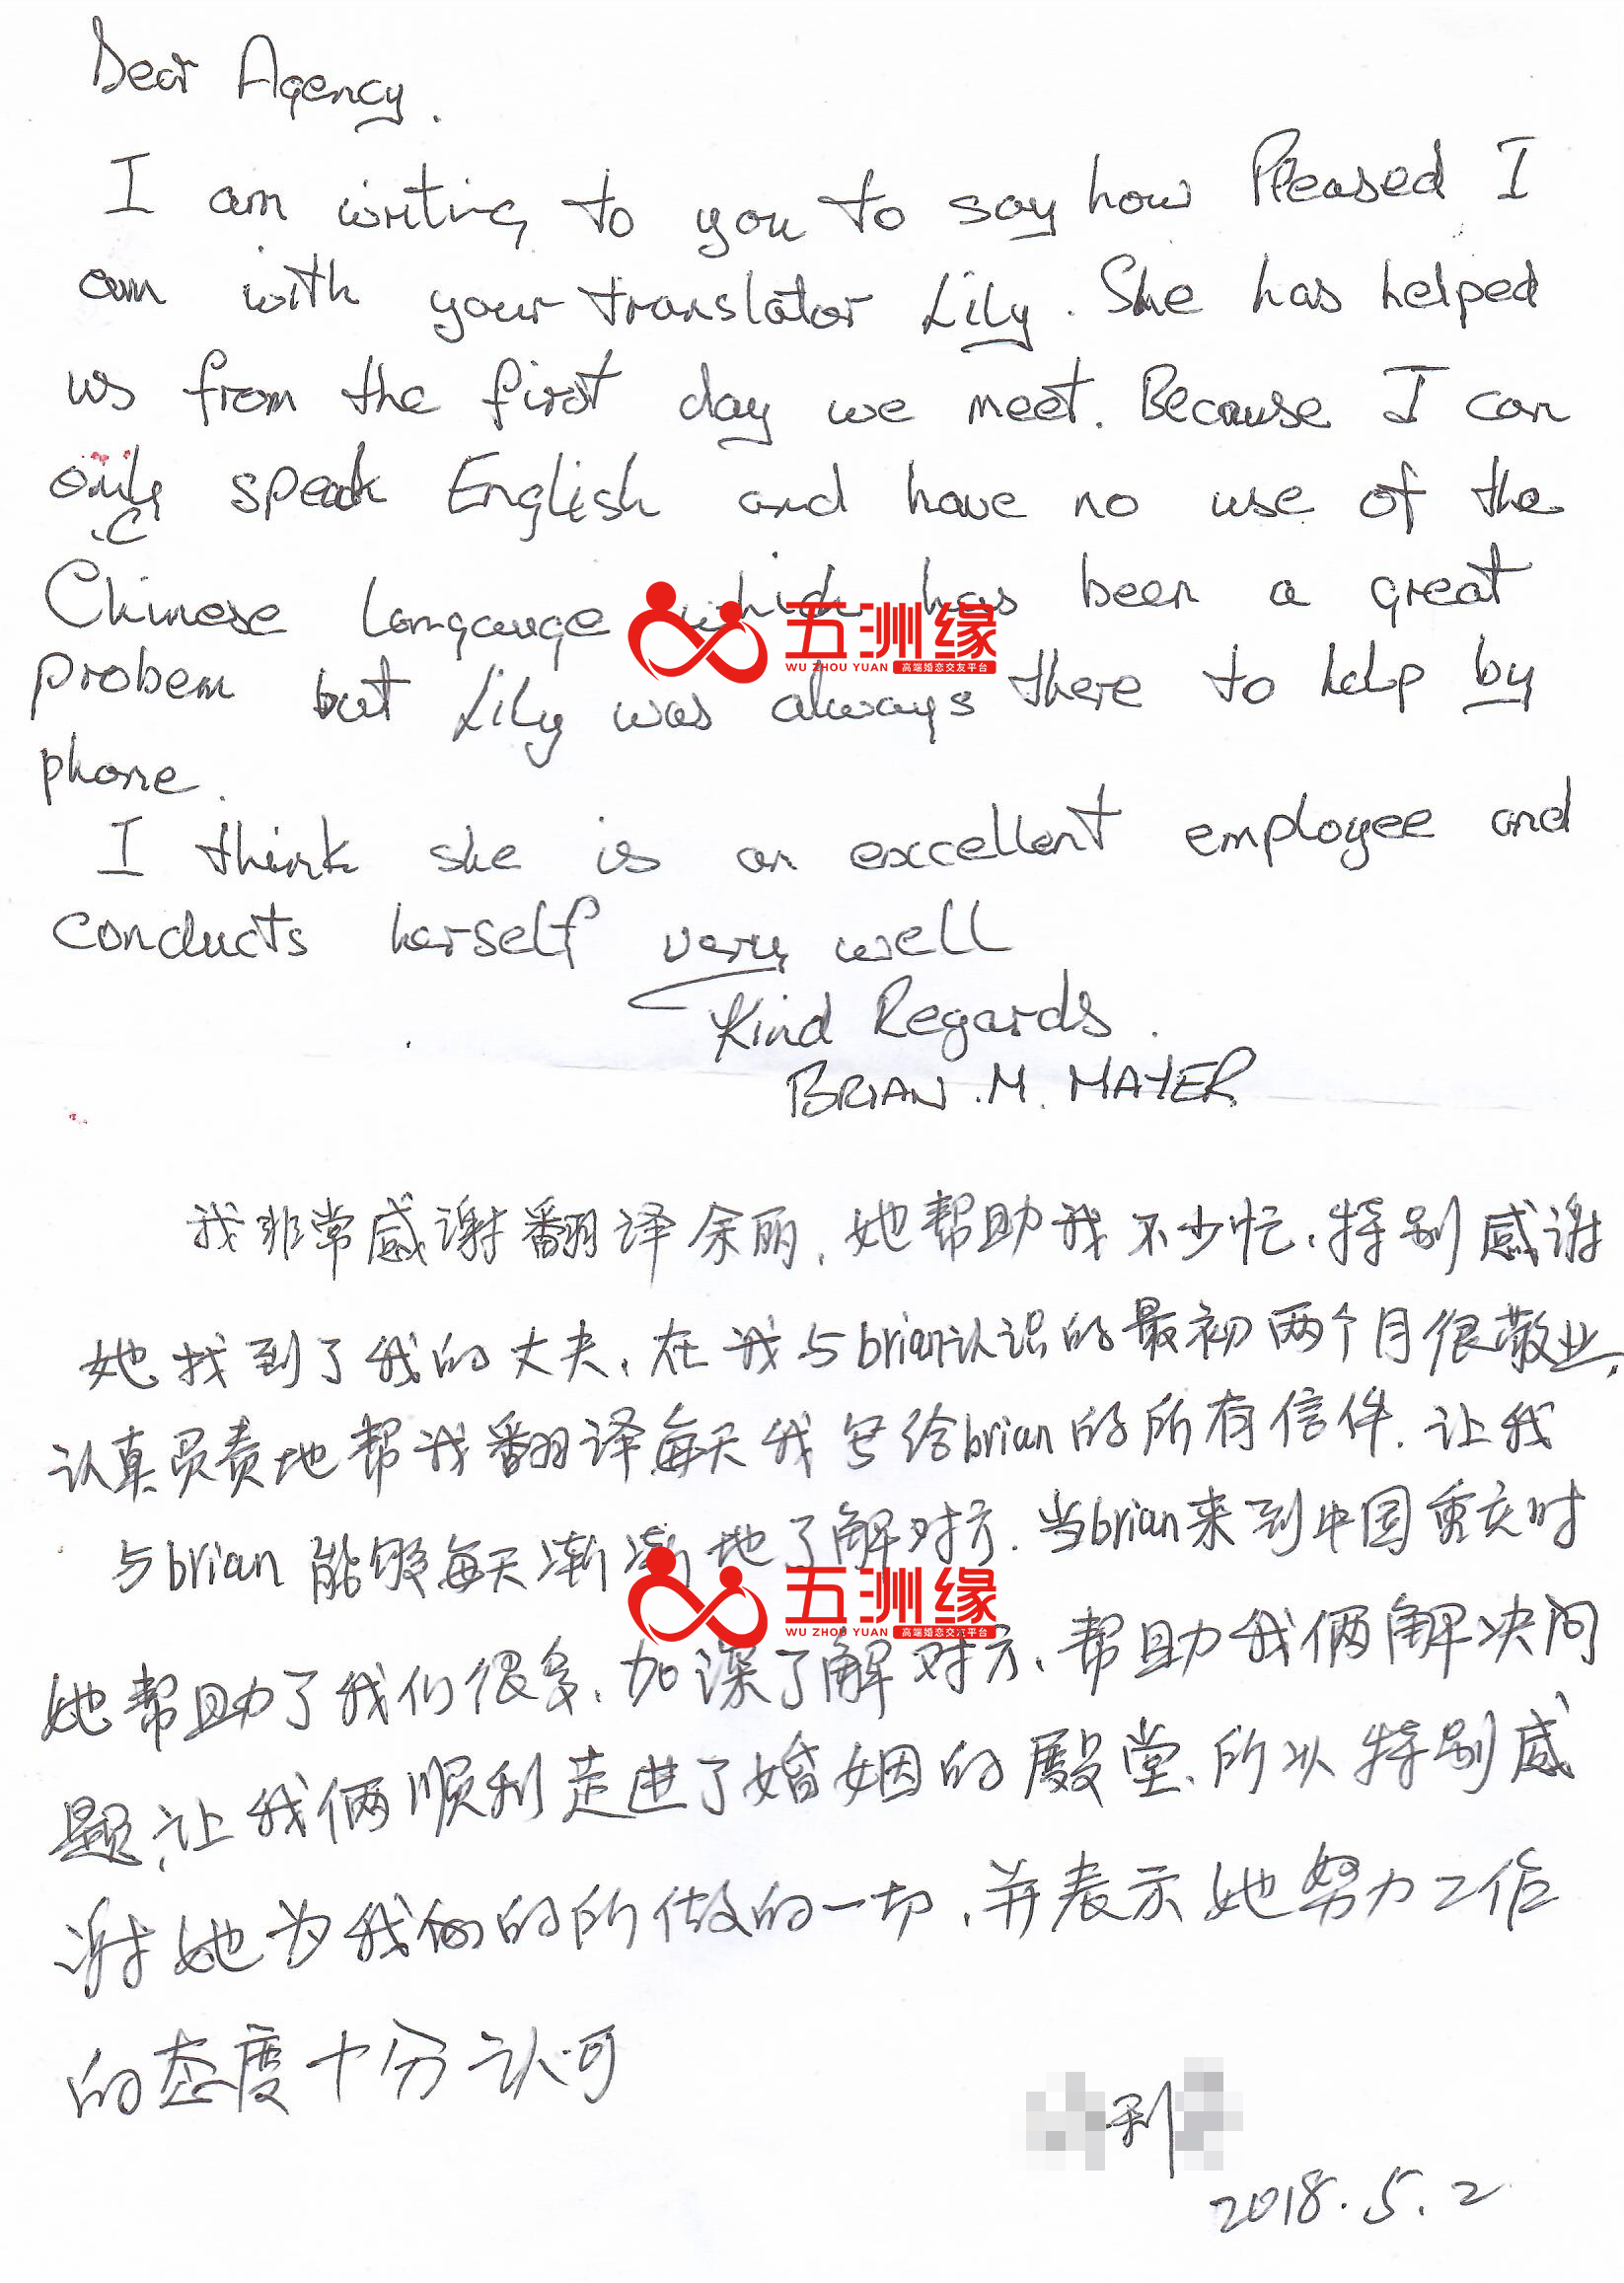 Dear Agency.
I am writing to you to say how Pleased I
am with your translator Lily. She has helped
us from the first day we meet. Because I can
only speak English and have no use of the
Chinese langauge which has been a great
probem but Lily was always there to help by
phone.
I think she is an excellent employee and
conducts herself very well
Kind Regards.
BRIAN. M. MAYER
我非常感谢翻译余丽,她帮助我不少忙,特别感谢
她找到了我的丈夫,在我与brian认识的最初两个月很敬业,
认真负责地帮我翻译每天我写给brian的所有信件.让我
与brian能够每天渐渐地了解对方.当brian来到中国重庆时
她帮助了我们很多,加深了解对方、帮助我俩解决问
题,让我俩顺利走进了婚姻的殿堂,所以特别感
谢她为我俩的所做的一切,并表示她努力工作
的态度十分认可
利
2018.5.2
五洲缘
WU ZHOU YUAN 高端婚恋交友平台
五洲缘
WU ZHOU YUAN 高端婚恋交友平台